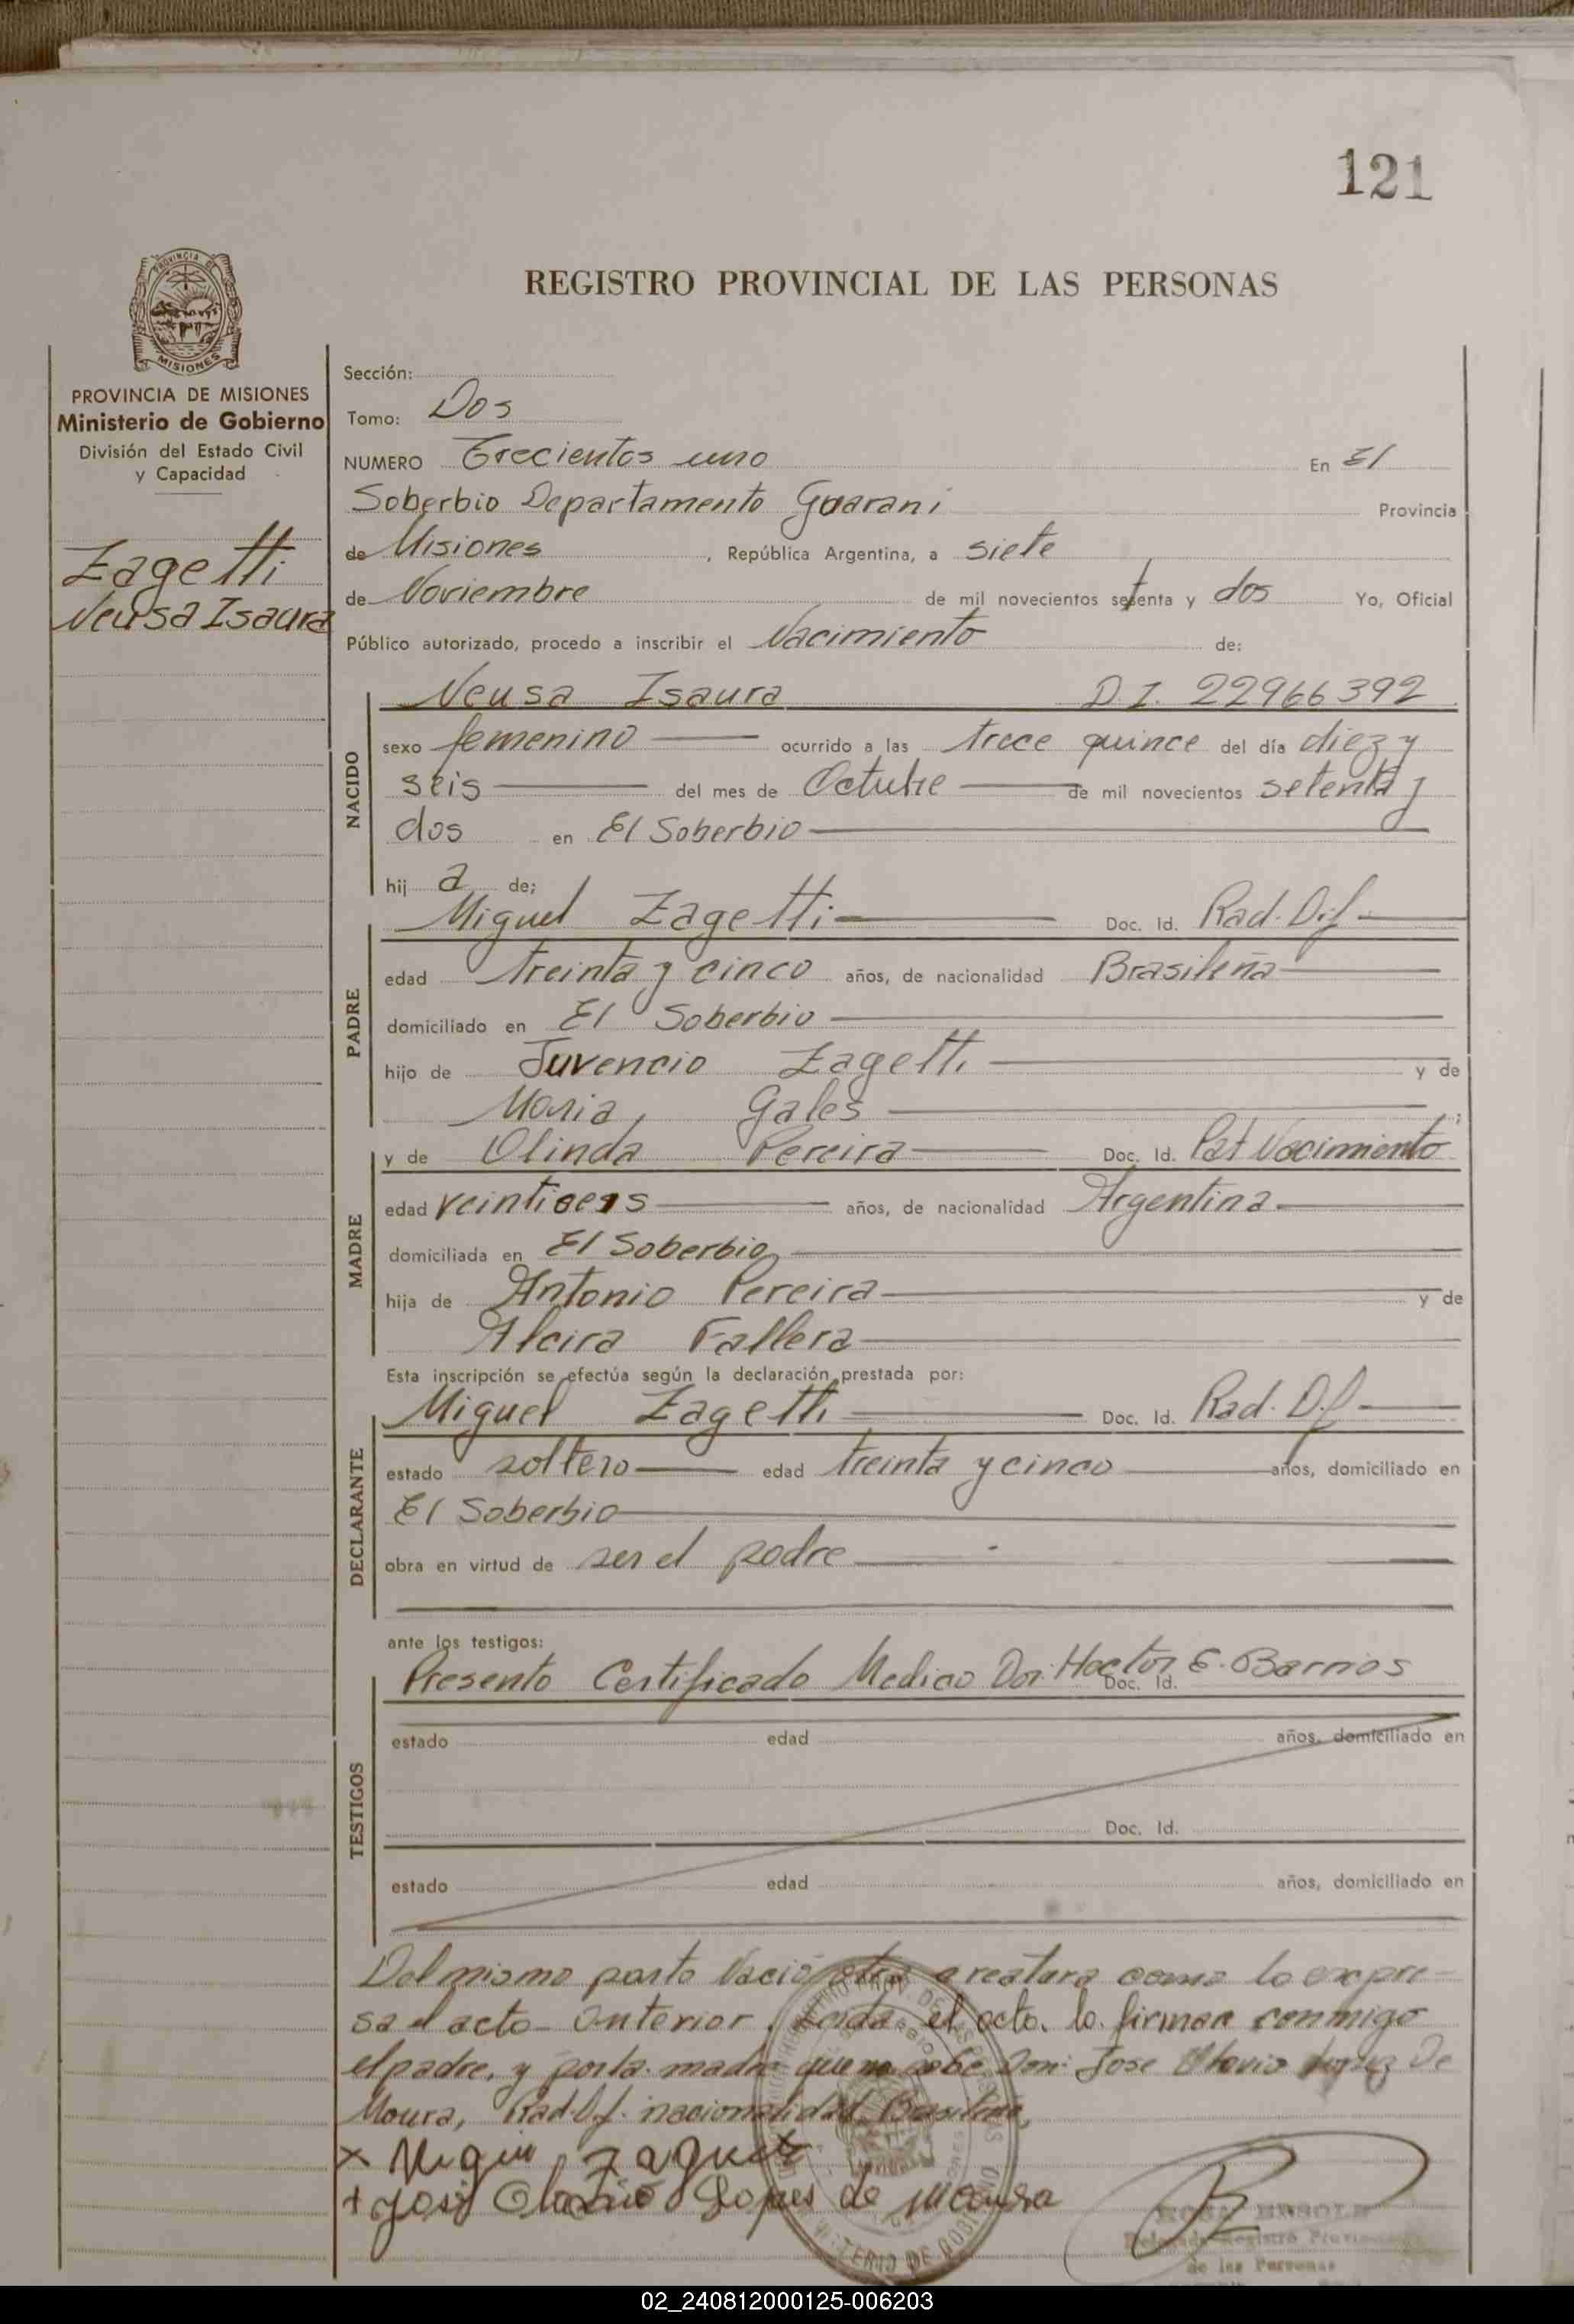 121
REGISTRO PROVINCIAL DE LAS PERSONAS
PROVINCIA DE
MISIONES
PROVINCIA DE MISIONES
Ministerio de Gobierno
División del Estado Civil
y Capacidad
Zagetti
Neusa Isaura
Sección:
Tomo: Dos
NUMERO Trecientos uno En El
Soberbio Departamento Guarani Provincia
de Misiones, República Argentina, a siete
de Noviembre de mil novecientos setenta y dos Yo, Oficial
Público autorizado, procedo a inscribir el Nacimiento de:
NACIDO
Neusa Isaura D.I. 22966392
sexo femenino ocurrido a las trece quince del día diez y
seis del mes de Octubre de mil novecientos setenta y
dos en El Soberbio
hij a de;
PADRE
Miguel Zagetti Doc. Id. Rad. Dif
edad treinta y cinco años, de nacionalidad Brasileña
domiciliado en El Soberbio
hijo de Juvencio Zagetti y de
Maria Gales ;
MADRE
y de Olinda Pereira Doc. Id. Pat Nacimiento
edad veintiseis años, de nacionalidad Argentina
domiciliada en El Soberbio
hija de Antonio Pereira y de
Alcira Fallera
Esta inscripción se efectúa según la declaración prestada por:
DECLARANTE
Miguel Zagetti Doc. Id. Rad. D.f
estado soltero edad treinta y cinco años, domiciliado en
El Soberbio
obra en virtud de ser el padre
ante los testigos:
TESTIGOS
Presento Certificado Medico Dor. Hector E. Barrios Doc. Id.
estado edad años, domiciliado en
Doc. Id.
estado edad años, domiciliado en
Del mismo parto Nació otra creatura como lo expre-
sa el acto anterior. Leida el acto. lo firman conmigo
el padre, y por la madre que no sabe Don: Jose Otavio De
Moura, Rad. D.f. nacionalidad Brasilena,
x Miguel
+ José Otavio Lopes de Moura
Delegada Registro Provincial
de las Personas
02_240812000125-006203